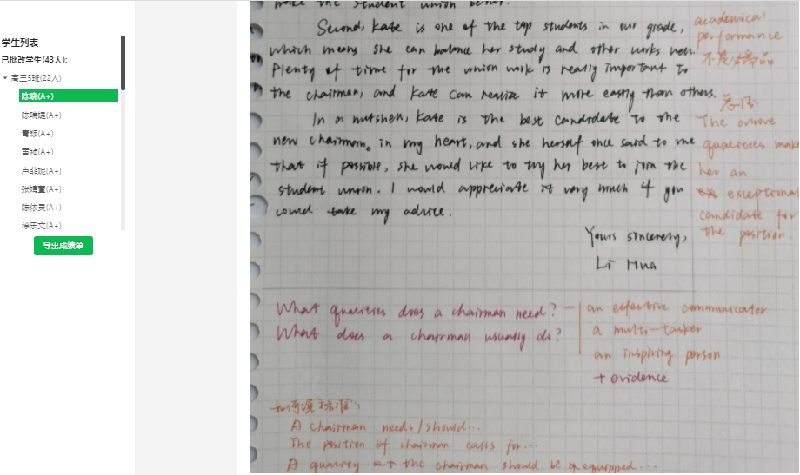 学生列表
已批改学生(43人):
高三5班(22人)
陈晓(A+)
陈瑞媛(A+)
(A+)
(A+)
(A+)
(A+)
陈依灵(A+)
徐乐文(A+)
导出成绩单
make the student union better.
Second, Kate is one of the top students in our grade,
which means she can balance her study and other works well.
Plenty of time for the union work is really important to
the chairman, and Kate can realize it more easily than others.
In a nutshell, Kate is the best candidate to the
new chairman, in my heart, and she herself once said to me
that if possible, she would like to try her best to join the
student union. I would appreciate it very much if you
could take my advice.
Yours sincerely,
Li Hua
academical
performance
不是
The above
qualities make
her an
exceptional
candidate for
the position.
What qualities does a chairman need?
What does a chairman usually do?
an effective communicator
a multi-tasker
an inspiring person
+ evidence
A chairman needs/should...
The position of chairman calls for...
A quality the chairman should be equipped...